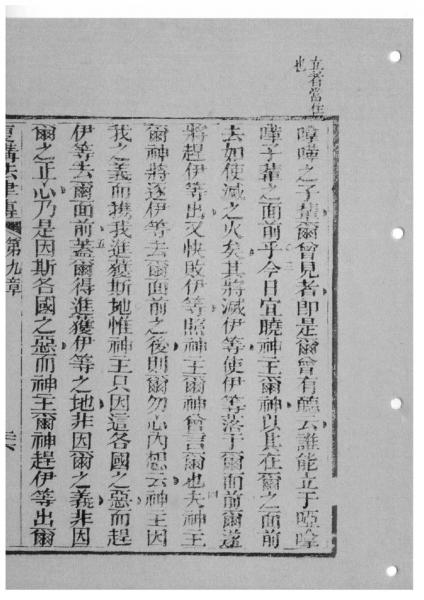 立者當住
也
之子輩爾曾見者即是爾曾有聽云誰能立于啞
子輩之面前乎今日宜曉神王爾神以其在爾之面前
去如使滅之火矣其將滅伊等使伊等落于爾面前爾遂
將趕伊等出又快敗伊等照神王爾神曾言爾也夫神王
爾神將逐伊等去爾面前之後則爾勿心內想云神王因
我之義而携我進獲斯地惟神王只因這各國之惡而趕
伊等去爾面前蓋爾得進獲伊等之地非因爾之義非因
爾之正心乃是因斯各國之惡而神王爾神趕伊等出爾
第九章